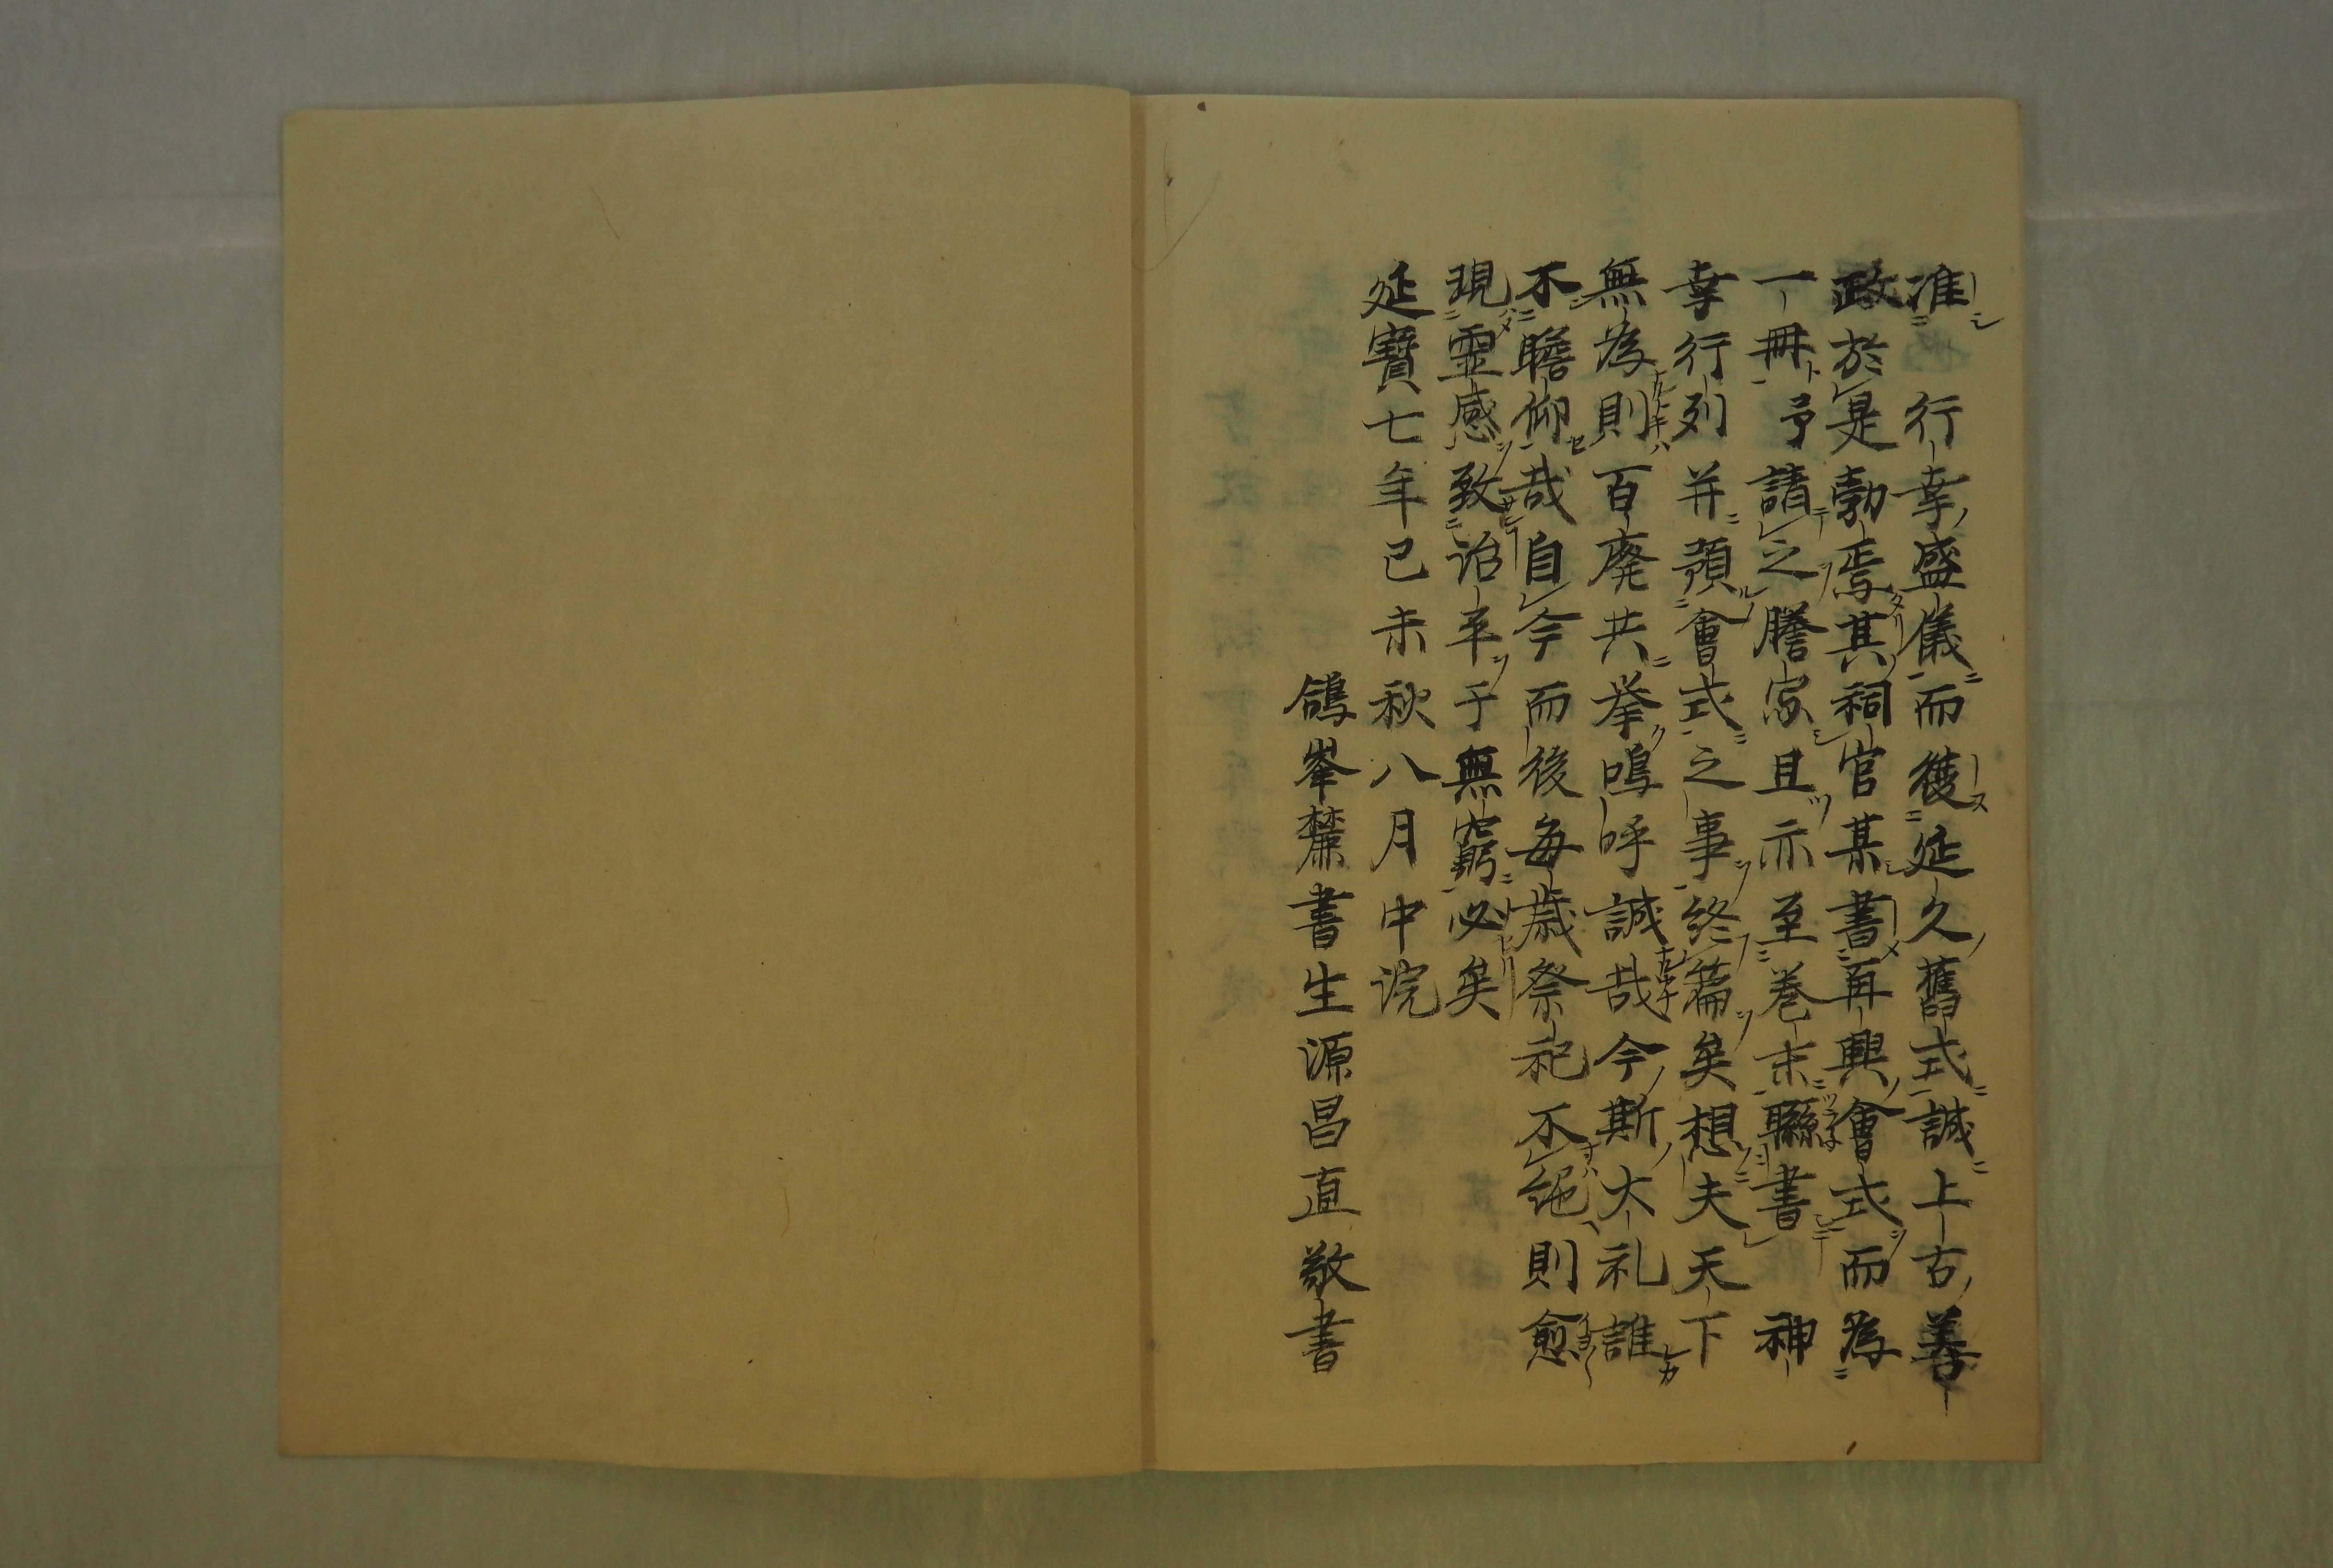 准　行幸盛儀而復延久舊式誠上古善
政於是勃焉其祠官某書再興會式而為
一冊予請之謄寫且示至巻末聯書　神
幸行列并預會式之事終篇矣想夫天下
無為則百廃共挙嗚呼誠哉今斯大礼誰
不瞻仰哉自今而後毎歳祭祀不絶則愈
現霊感致治平于無窮必矣
延寶七年己未秋八月中浣
鴿峯麓書生源昌直敬書